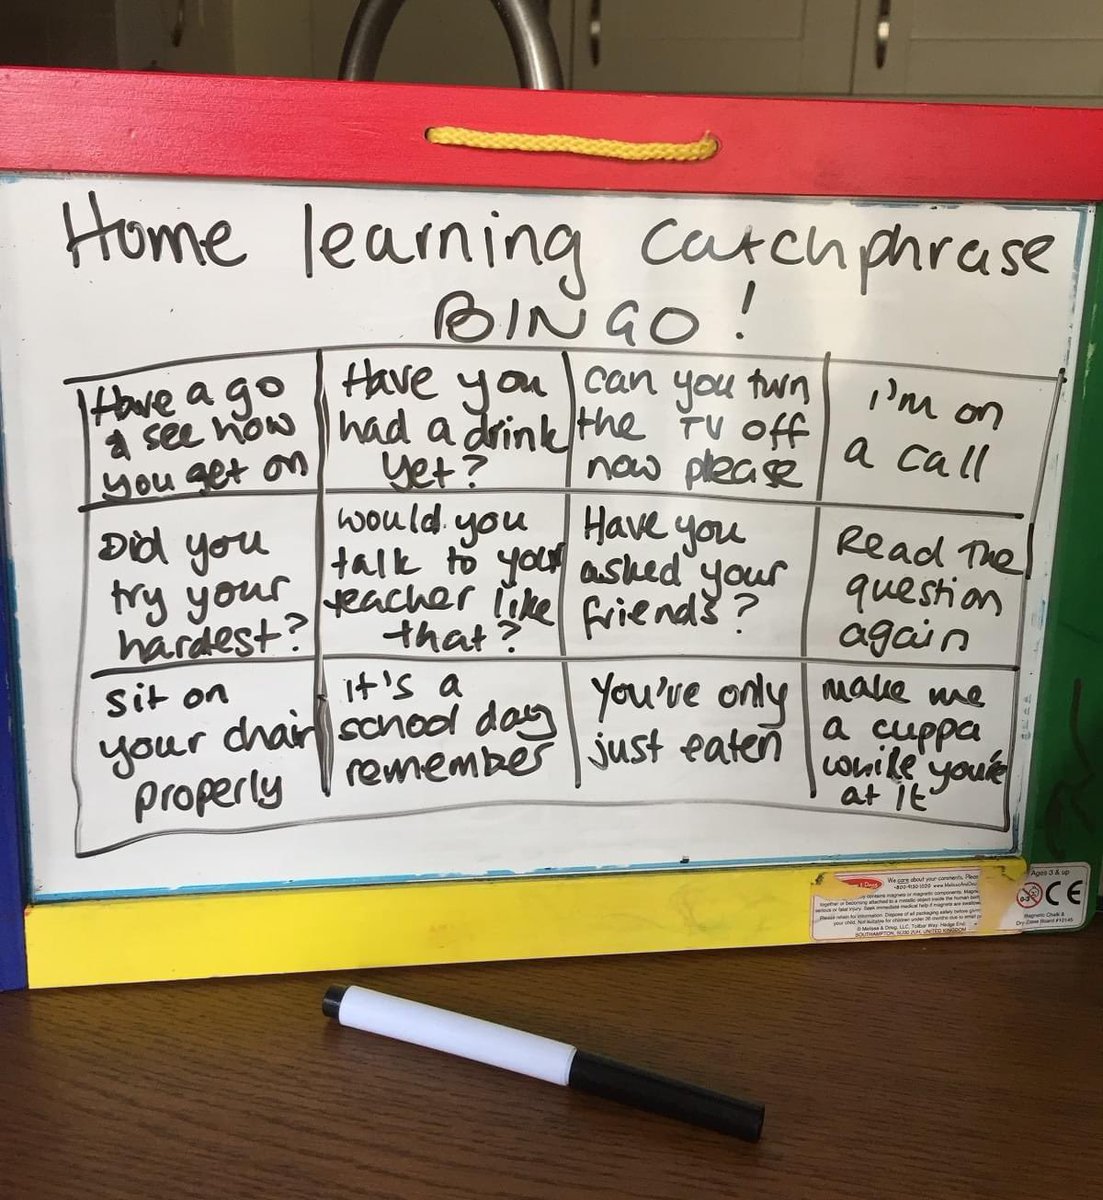 Home learning catchphrase
BINGO!
Have a go
& see how
you get on
Have you
had a drink
yet?
can you turn
the TV off
now please
I'm on
a call
Did you
try your
hardest?
would you
talk to your
teacher like
that?
Have you
asked your
friends?
Read the
question
again
sit on
your chair
properly
it's a
school day
remember
You've only
just eaten
make me
a cuppa
while you're
at it
We care about your comments, Please
Ages 3 & up
0-3
CE
Magnetic Chalk &
Dry Erase Board #12145
© Melissa & Doug, LLC, Tollbar Way, Hedge End,
SOUTHAMPTON, SO30 2UH, UNITED KINGDOM